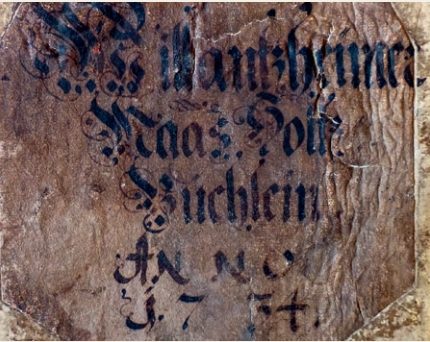 Willantzheimer
Maas. Holtz
Büchlein
ANNO
1734.